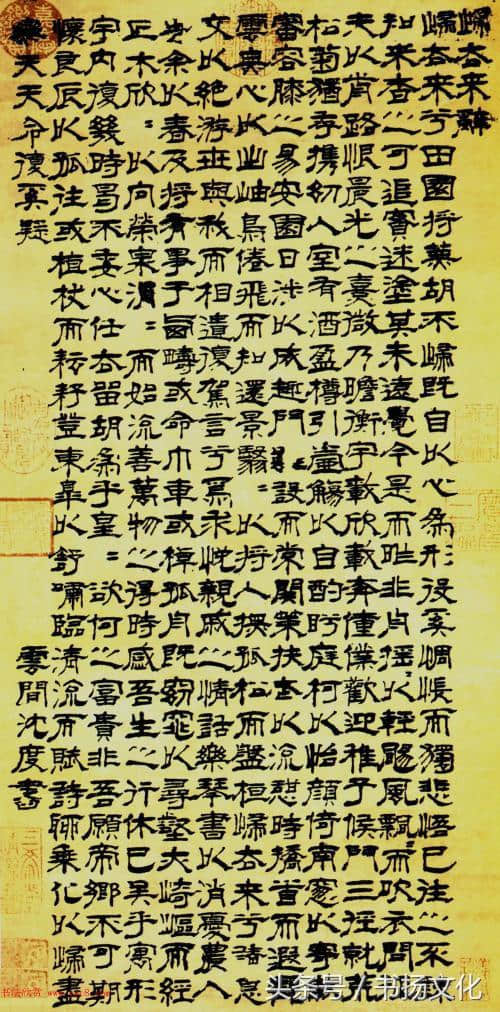 歸去來辭
歸去來兮田園將蕪胡不歸既自以心為形役奚惆悵而獨悲悟已往之不
知來者之可追實迷塗其未遠覺今是而昨非舟搖〻以輕颺風飄〻而吹衣問
夫以前路恨晨光之熹微乃瞻衡宇載欣載奔僮僕歡迎稚子候門三徑就荒
松菊猶存攜幼入室有酒盈樽引壺觴以自酌眄庭柯以怡顏倚南窗以寄
審容膝之易安園日涉以成趣門雖設而常關策扶老以流憩時矯首而遐
雲無心以出岫鳥倦飛而知還景翳〻以將入撫孤松而盤桓歸去來兮請息
交以絕游世與我而相遺復駕言兮焉求悅親戚之情話樂琴書以消憂農人
告余以春及將有事于西疇或命巾車或棹孤舟既窈窕以尋壑亦崎嶇而經
丘木欣〻以向榮泉涓〻而始流善萬物之得時感吾生之行休已矣乎寓形
宇內復幾時曷不委心任去留胡為乎皇〻欲何之富貴非吾願帝鄉不可期
懷良辰以孤往或植杖而耘耔登東皋以舒嘯臨清流而賦詩聊乘化以歸盡
樂夫天命復奚疑
雲間沈度書
头条号 / 书扬文化